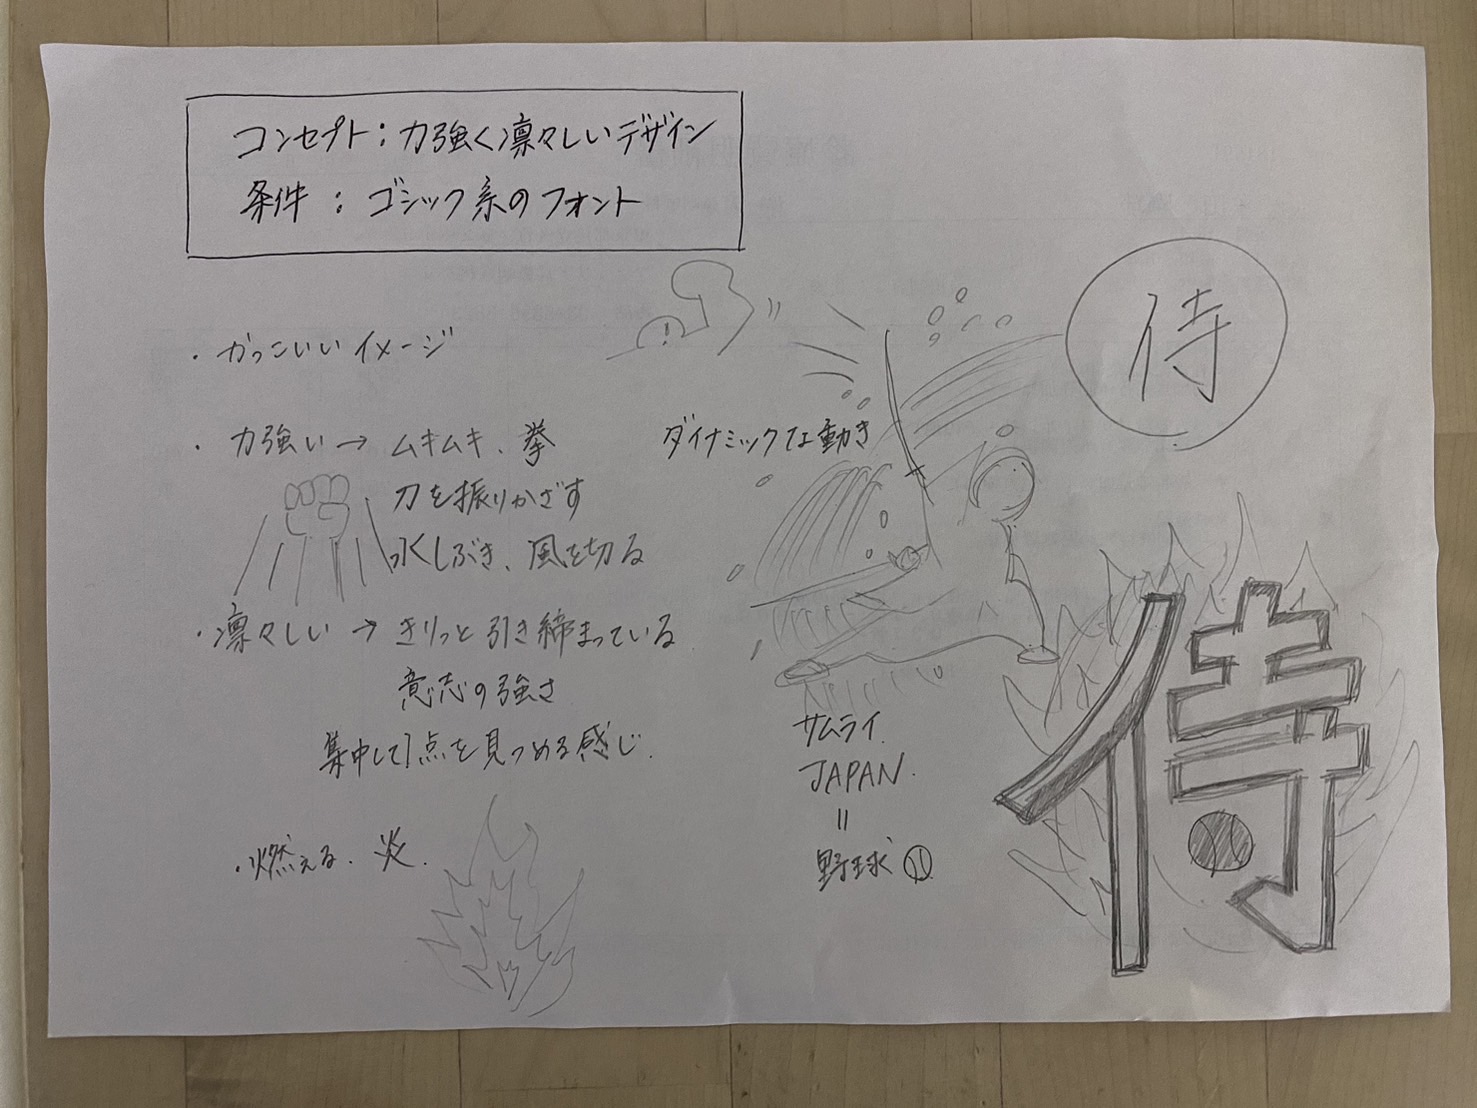 コンセプト：力強く凛々しいデザイン
条件：ゴシック系のフォント
・かっこいいイメージ
・力強い→ムキムキ、拳
刀を振りかざす
水しぶき、風を切る
・凛々しい→きりっと引き締まっている
意志の強さ
集中して1点を見つめる感じ.
・燃える、炎.
！
ダイナミックな動き
サムライ
JAPAN.
〃
野球
侍
侍